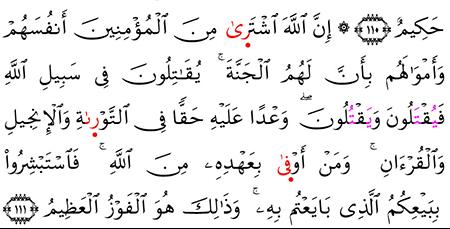 حَكِيمٌ ﴿١١٠﴾ ۞ إِنَّ ٱللَّهَ ٱشْتَر۪ىٰ مِنَ ٱلْمُؤْمِنِينَ أَنفُسَهُمْ
وَأَمْوَٰلَهُم بِأَنَّ لَهُمُ ٱلْجَنَّةَ ۚ يُقَٰتِلُونَ فِى سَبِيلِ ٱللَّهِ
فَيُقْتَلُونَ وَيَقْتُلُونَ ۖ وَعْدًا عَلَيْهِ حَقًّا فِى ٱلتَّوْر۪ىٰةِ وَٱلْإِنجِيلِ
وَٱلْقُرْءَانِ ۚ وَمَنْ أَوْف۪ىٰ بِعَهْدِهِۦ مِنَ ٱللَّهِ ۚ فَٱسْتَبْشِرُوا۟
بِبَيْعِكُمُ ٱلَّذِى بَايَعْتُم بِهِۦ ۚ وَذَٰلِكَ هُوَ ٱلْفَوْزُ ٱلْعَظِيمُ ﴿١١١﴾